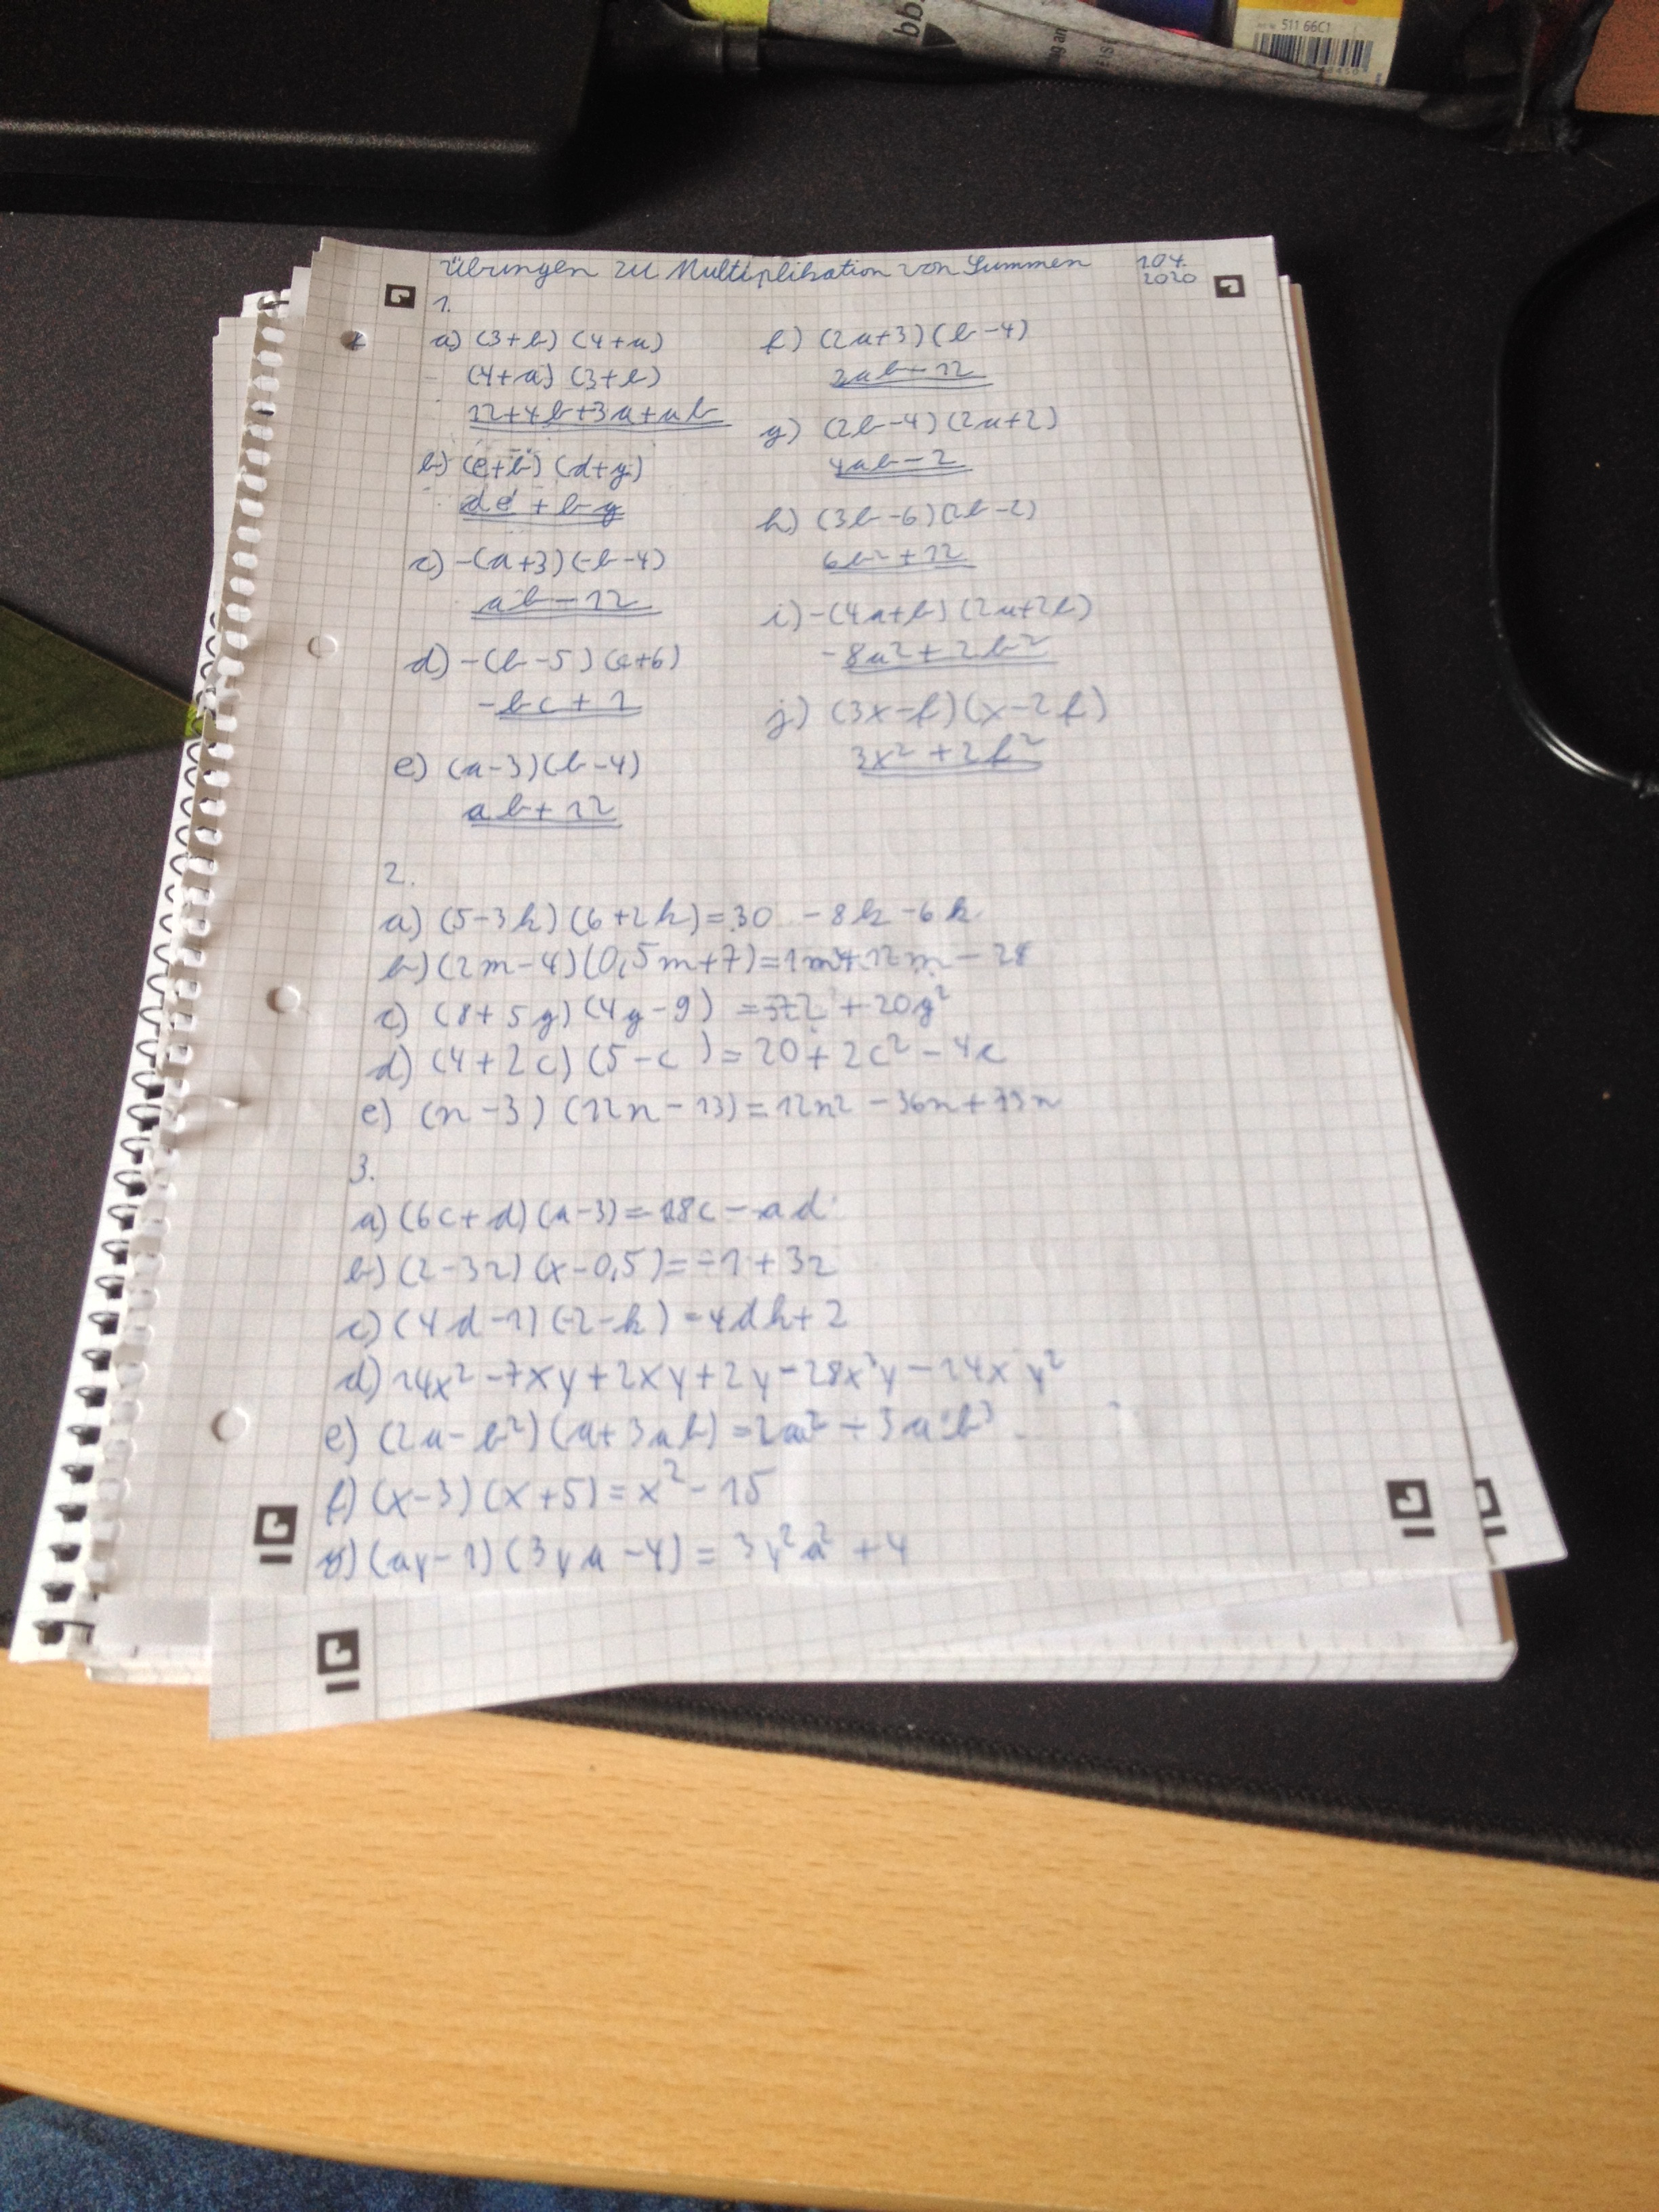 511 66C1
bb
Übungen zu Multiplikation von Summen 1.04.
2020
1.
a) (3+b) (4+a)
(4+a) (3+b)
12+4b+3a+ab
b) (e+b) (d+y)
de + by
c) -(a+3)(-b-4)
ab-12
d) -(b-5)(c+6)
-bc + 1
e) (a-3)(b-4)
ab+12
f) (2a+3)(b-4)
2ab-12
g) (2b-4)(2a+2)
4ab-2
h) (3b-6)(2b-2)
6b²+12
i) -(4a+b)(2a+2b)
-8a²+2b²
j) (3x-f)(x-2f)
3x²+2f²
2.
a) (5-3k)(6+2k)=30 -8k-6k
b) (2m-4)(0,5m+7)=1m²+12m-28
c) (8+5y)(4y-9) = +20y²
d) (4+2c)(5-c)=20+2c²-4c
e) (n-3)(12n-13)=12n²-36n+13n
3.
a) (6c+d)(a-3)=18c-ad
b) (2-3z)(x-0,5)=-1+3z
c) (4d-1)(-2-k)=4dk+2
d) 14x²-7xy+2xy+2y-28x²y-14xy²
e) (2a-b²)(a+3ab)=2a²-3a b³
f) (x-3)(x+5)=x²-15
g) (ay-1)(3ya-4)=3y²a²+4